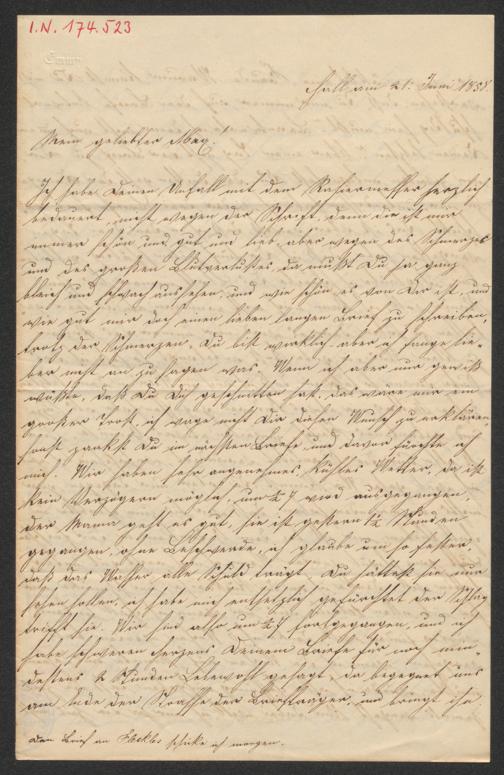 I.N. 174.523
Hall am 21. Juni 1858.
Mein geliebter Max!
Ich habe Deinen Unfall mit dem Rasiermesser herzlich
bedauert, nicht wegen der Schrift, denn die ist mir
immer schön und gut und lieb, aber wegen des Schmerzes
und des großen Blutverlustes, da mußt Du ja ganz
bleich und schwach aussehen, und wie schön es von Dir ist, und
wie gut mir doch einen lieben langen Brief zu schreiben,
trotz der Schmerzen, Du bist wirklich aber ich fange lie-
ber nicht an zu sagen was. Wenn ich aber nur gewiß
wüßte, daß Du Dich geschnitten hast, das wäre mir ein
großer Trost, ich wage nicht Dir diesen Wunsch zu erklären,
sonst zankst Du im nächsten Briefe und davor fürchte ich
mich. Wir haben sehr angenehmes, kühles Wetter, da ist
kein Verzögern möglich, um 1/2 7 wird ausgegangen.
Der Mama geht es gut, sie ist gestern 1 1/2 Stunden
gegangen, ohne Beschwerde, ich glaube um so fester,
daß das Wasser alle Schuld trägt. Du hättest sie nur
sehen sollen, ich habe mich entsetzlich gefürchtet der Schlag
trifft sie. Wir sind also um 1/2 7 fortgegangen, und ich
habe schweren Herzens Deinem Briefe für noch min-
destens 2 Stunden Lebewohl gesagt, da begegnet uns
am Ende der Strasse der Briefträger, und bringt ihn
Den Brief an schicke ich morgen.